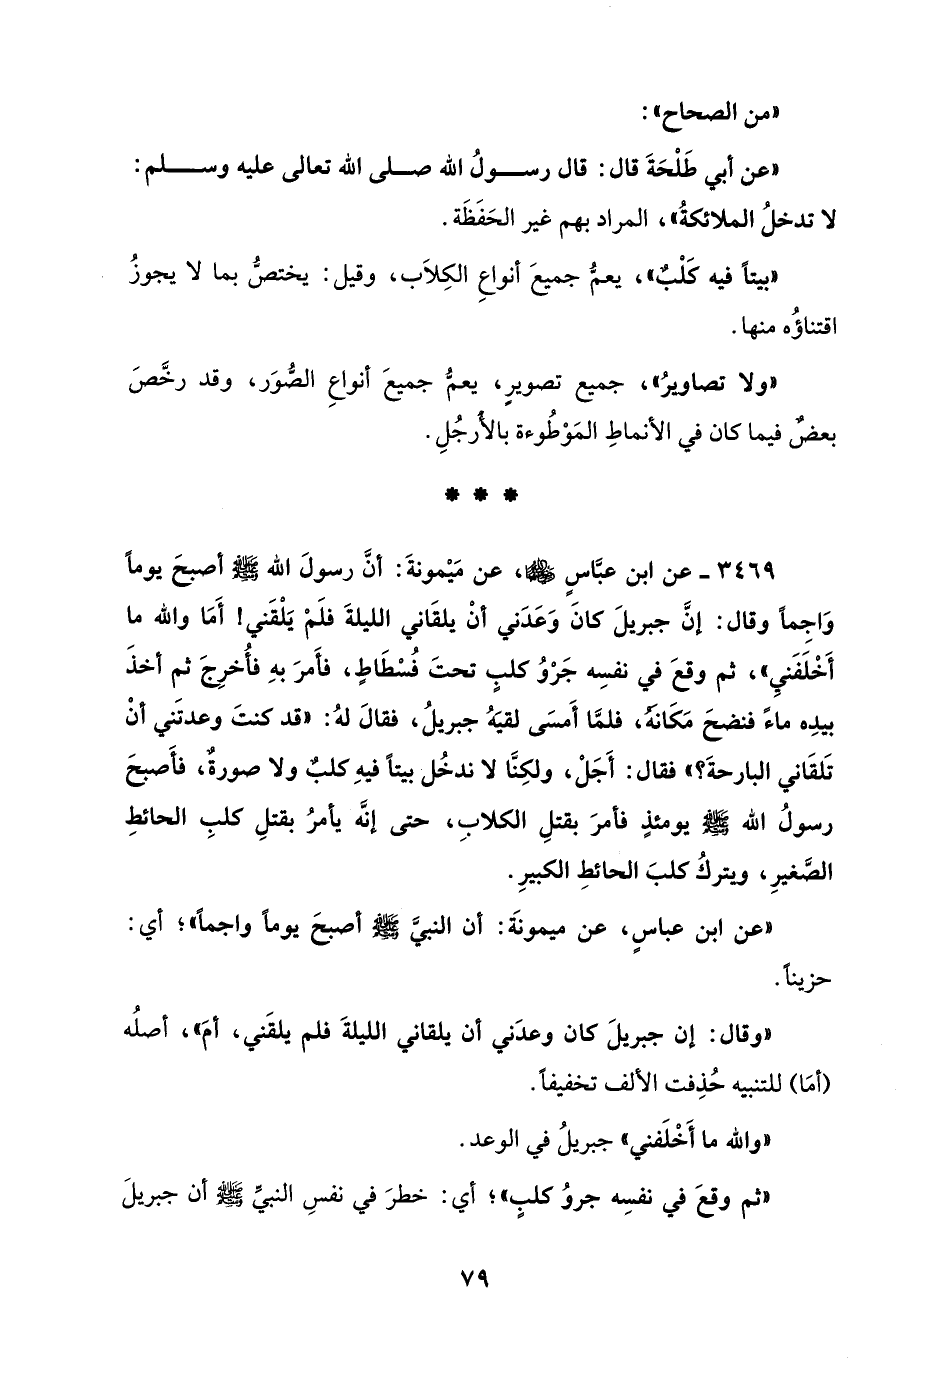 «من الصحاح»:
«عن أبي طَلْحَةَ قال: قال رســولُ الله صــلى الله تعالى عليه وســـلم:
لا تدخلُ الملائكةُ»، المراد بهم غير الحَفَظَة.
«بيتاً فيه كَلْبٌ»، يعمُّ جميعَ أنواعِ الكِلاَب، وقيل: يختصُّ بما لا يجوزُ
اقتناؤُه منها.
«ولا تصاويرُ»، جميع تصويرٍ، يعمُّ جميعَ أنواعِ الصُّوَر، وقد رخَّصَ
بعضٌ فيما كان في الأنماطِ المَوْطُوءة بالأَرجُلِ.
* * *
٣٤٦٩ ـ عن ابن عبَّاسٍ ﵄، عن مَيْمونةَ: أنَّ رسولَ الله ﷺ أصبحَ يوماً
وَاجِماً وقال: إنَّ جبريلَ كانَ وَعَدَني أنْ يلقَاني الليلةَ فلَمْ يَلْقَني! أَمَا والله ما
أَخْلَفَنيِ»، ثم وقعَ في نفسِه جَرْوُ كلبٍ تحتَ فُسْطَاطٍ، فأمَرَ بهِ فأُخرِجَ ثم أخذَ
بيدِه ماءً فنضحَ مَكَانَهُ، فلمَّا أَمسَى لقيَهُ جبريلُ، فقالَ لهُ: «قد كنتَ وعدتَني أنْ
تَلقَاني البارحةَ؟» فقال: أَجَلْ، ولكِنَّا لا ندخُل بيتاً فيهِ كلبٌ ولا صورةٌ، فأَصبحَ
رسولُ الله ﷺ يومئذٍ فأمرَ بقتلِ الكلابِ، حتى إنَّه يأمرُ بقتلِ كلبِ الحائطِ
الصَّغيرِ، ويتركُ كلبَ الحائطِ الكبيرِ.
«عن ابن عباسٍ، عن ميمونةَ: أن النبيَّ ﷺ أصبحَ يوماً واجماً»؛ أي:
حزيناً.
«وقال: إن جبريلَ كان وعدَني أن يلقاني الليلةَ فلم يلقَني، أمَ»، أصلُه
(أمَا) للتنبيه حُذِفت الألف تخفيفاً.
«والله ما أَخْلَفني» جبريلُ في الوعد.
«ثم وقعَ في نفسِه جروُ كلبٍ»؛ أي: خطرَ في نفسِ النبيِّ ﷺ أن جبريلَ
٧٩